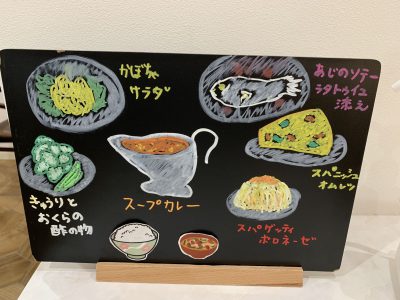 かぼちゃ
サラダ
あじのソテー
ラタトゥイユ
添え
きゅうりと
おくらの
酢の物
スープカレー
スパニッシュ
オムレツ
スパゲッティ
ボロネーゼ